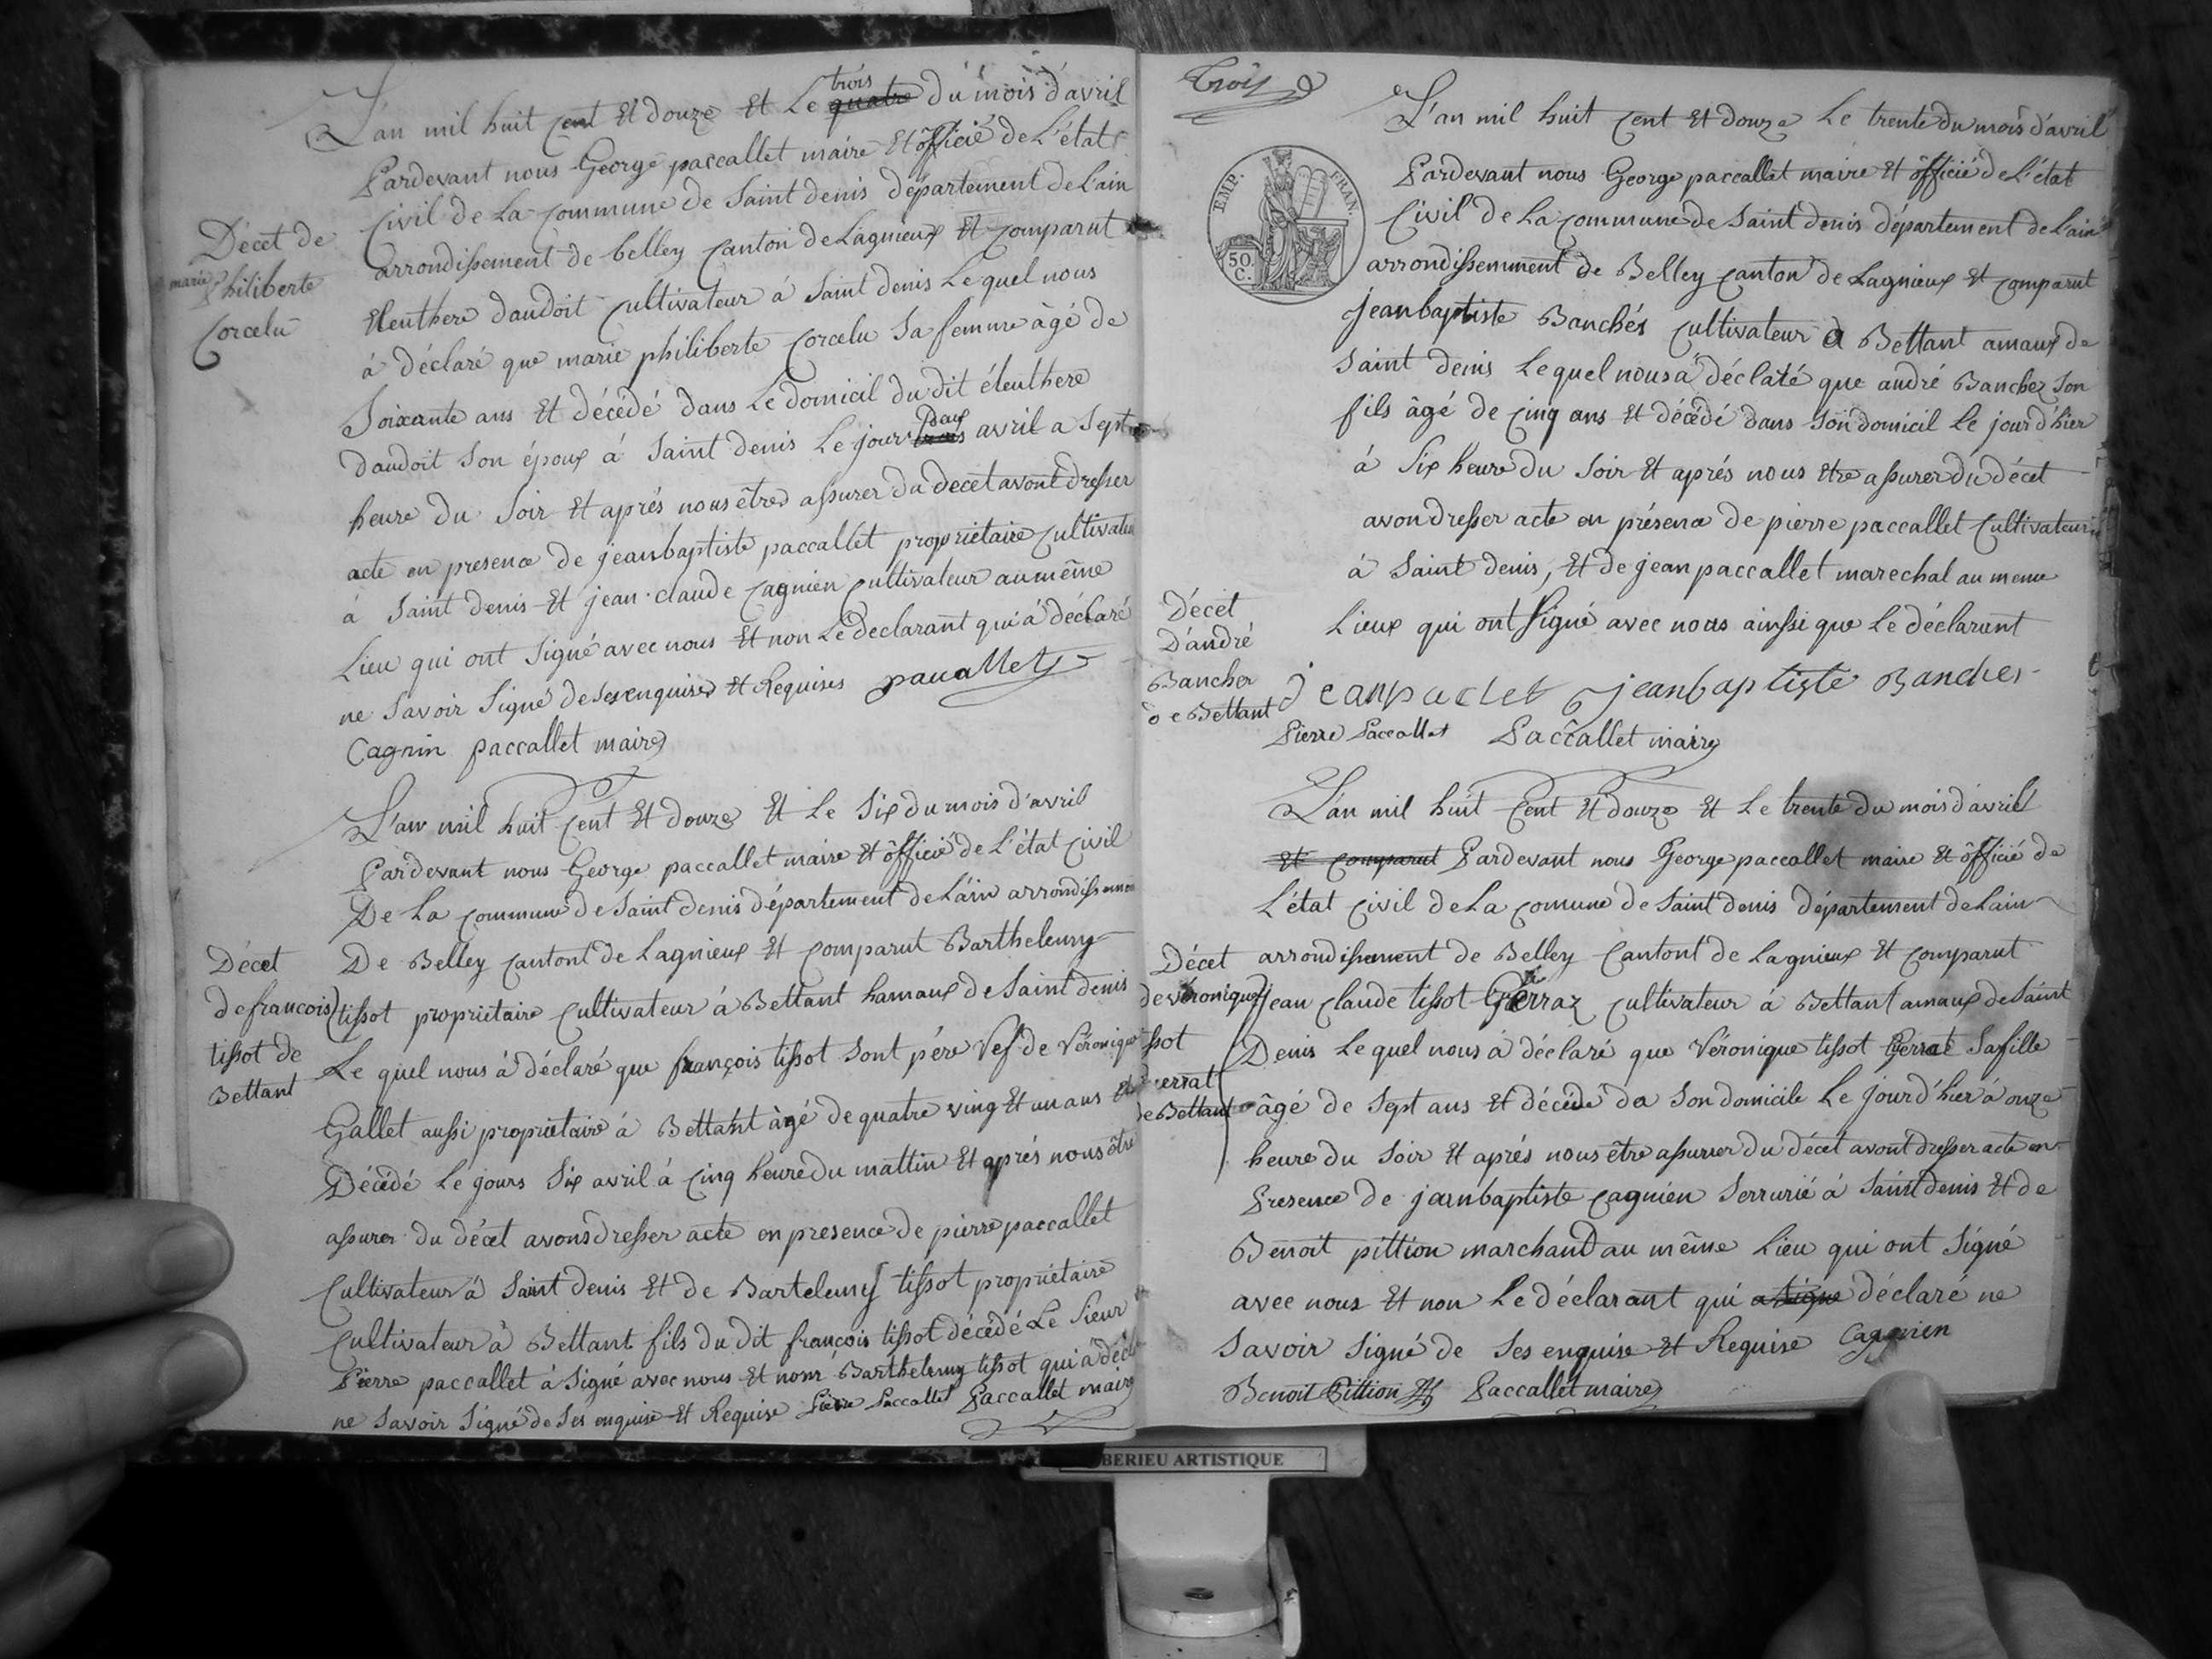 L'an mil huit cent Et douze Et Le quatre trois du mois d'avril
Pardevant nous George paccallet maire Et officié de L'état
Civil de La commune de Saint denis département de L'ain
arrondissement de belley canton de Lagnieux Et comparut
Eleuthere daudoit cultivateur à Saint denis Le quel nous
à déclaré que marie philiberte Corcelu Sa femme âgé de
Soixante ans Et décédé dans Le domicil du dit éleuthere
daudoit Son époux à Saint denis Le jours deux avril a Sept
heure du Soir Et aprés nous êtres assurer du decet avont dresser
acte en presence de jeanbaptiste paccallet propriétaire cultivateur
à Saint denis Et jean-claude cagnien cultivateur au même
Lieu qui ont Signé avec nous Et non Le declarant qui à déclaré
ne Savoir Signé de Ses enquises Et Requises paccallet
Cagnin paccallet maire
Décet de
marie philiberte
Corcelu
L'an mil huit Cent Et douze Et Le Six du mois d'avril
Pardevant nous George paccallet maire Et officié de L'état civil
De La commune de Saint denis département de L'ain arrondissement
De Belley cantont de Lagnieux Et comparut Barthelemy
tissot propriétaire cultivateur à Bettant hamaux de Saint denis
Le quel nous à déclaré que françois tissot Sont pére Vef de Véronique
Gallet aussi propriétaire à Bettant âgé de quatre ving Et un ans Et
Décédé Le jours Six avril à cinq heure du mattin Et aprés nous être
assurer du décet avons dresser acte en presence de pierre paccallet
Cultivateur à Saint denis Et de Bartelemy tissot propriétaire
cultivateur à Bettant fils du dit françois tissot décédé Le Sieur
Pierre paccallet à Signé avec nous Et non Barthelemy tissot qui à déclaré
ne Savoir Signé de Ses enquise Et Requise Pierre Paccallet Paccallet maire
Décet
de francois
tissot de
Bettant
Trois
EMP. FRAN.
50 C.
L'an mil huit Cent Et douze Le trente du mois d'avril
Pardevant nous George paccallet maire Et officié de L'état
Civil de La commune de Saint denis département de L'ain
arrondissemment de Belley canton de Lagnieux Et comparut
jeanbaptiste Banchés cultivateur à Bettant amaux de
Saint denis Le quel nous à déclaré que andré Banchez Son
fils âgé de cinq ans Et décédé dans Son domicil Le jour d'hier
à Six heure du Soir Et aprés nous Etre assurer du décet
avon dresser acte en présence de pierre paccallet cultivateur
à Saint denis, Et de jean paccallet marechal au meme
Lieux qui ont Signé avec nous ainssi que Le déclarant
jeanbaptiste Banches
Pierre Paccallet Paccallet maire
Décet
D'andré
Bancher
de Bettant
L'an mil huit Cent Et douze Et Le trente du mois d'avril
Et comparut Pardevant nous George paccallet maire Et officié de
L'état civil de La comune de Saint denis département de L'ain
arrondissement de Belley Cantont de Lagnieux Et comparut
jean claude tissot Gerraz cultivateur à Bettant amaux de Saint
Denis Le quel nous à déclaré que Véronique tissot Gerrat Sa fille
âgé de Sept ans Et décédé da Son domicile Le jour d'hier à onze
heure du Soir Et aprés nous être assurer du décet avont dresser acte en
Presence de jeanbaptiste cagnien Serrurié à Saint denis Et de
Benoit pittion marchand au même Lieu qui ont Signé
avec nous Et non Le déclarant qui a Signé déclaré ne
Savoir Signé de Ses enquise Et Requise Cagnien
Benoit Pittion Paccallet maire
Décet
de véronique
tissot
Gerrat
de Bettant
BERIEU ARTISTIQUE